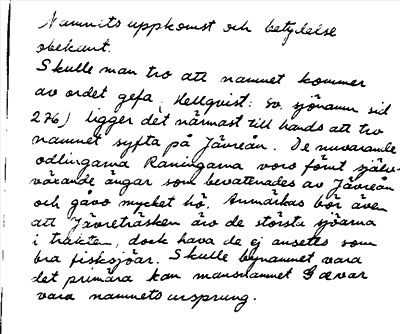 Namnets uppkomst och betydelse
obekant.
Skulle man tro att namnet kommer
av ordet gefa (Hellqvist: Sv. sjönamn sid
276) ligger det närmast till hands att tro
namnet syfta på Jävreån. De nuvarande
odlingarna Raningarna voro förut själv-
växande ängar som bevattnades av Jävreån
och gåvo mycket hö. Anmärkas bör även
att Jävreträsken äro de största sjöarna
i trakten, dock hava de ej ansetts som
bra fisksjöar. Skulle bynamnet vara
det primära kan mansnamnet Gævar
vara namnets ursprung.